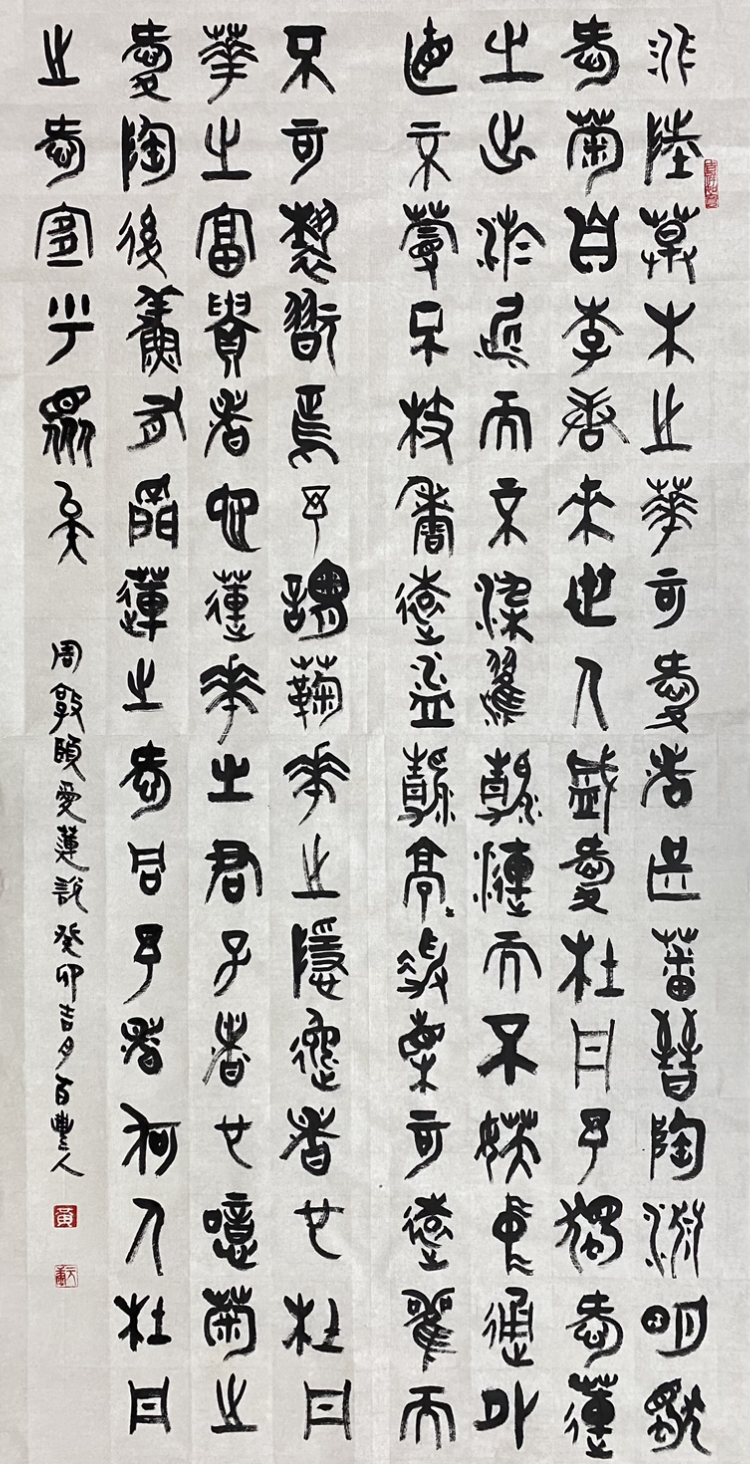 水陸草木之華可愛者甚蕃晉陶淵明獨
愛菊自李唐來世人盛愛牡丹予獨愛蓮
之出淤泥而不染濯清漣而不妖中通外
直不蔓不枝香遠益清亭〻淨植可遠觀而
不可褻翫焉予謂菊花之隱逸者也牡丹
華之富貴者也蓮花之君子者也噫菊之
愛陶後鮮有聞蓮之愛同予者何人牡丹
之愛宜乎眾矣
周敦頤愛蓮說癸卯吉月百豐人